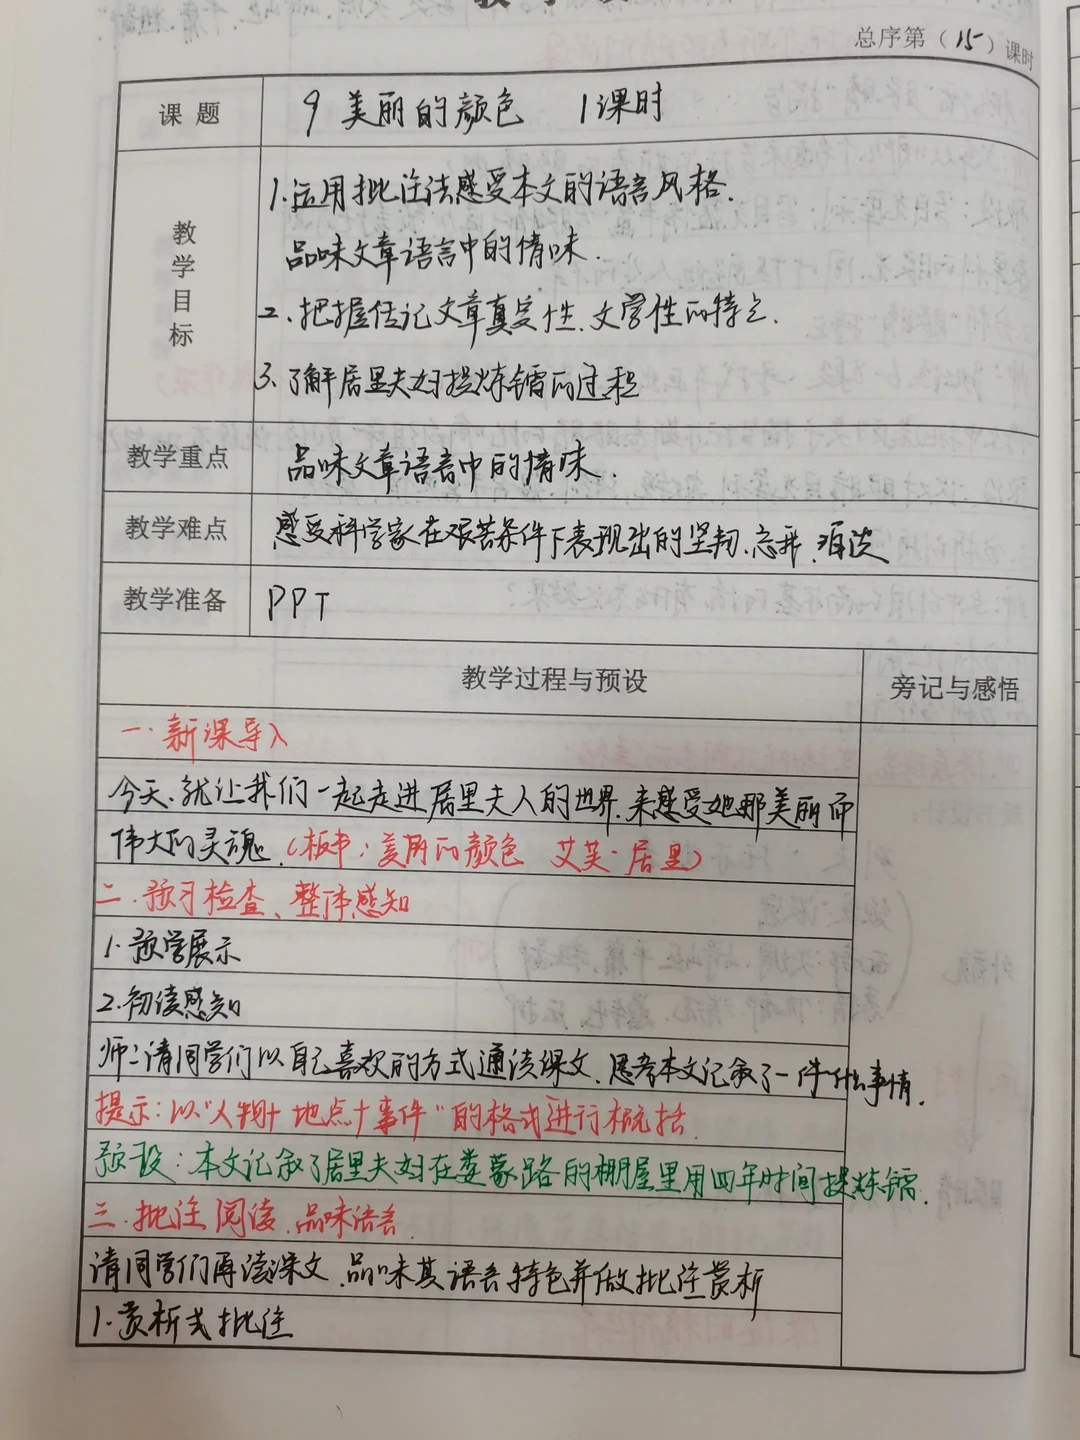 总序第（15）课时
课 题
9 美丽的颜色 1课时
教学目标
1.运用批注法感受本文的语言风格.
品味文章语言中的情味.
2.把握传记文章真实性、文学性的特点.
3.了解居里夫妇提炼镭的过程
教学重点
品味文章语言中的情味.
教学难点
感受科学家在艰苦条件下表现出的坚韧、忘我、
教学准备
PPT
教学过程与预设
旁记与感悟
一.新课导入
今天、就让我们一起走进居里夫人的世界.来感受她那美丽而
伟大的灵魂.（板书：美丽的颜色 艾芙·居里）
二.预习检查、整体感知
1.预学展示
2.初读感知
师：请同学们以自己喜欢的方式通读课文、思考本文记叙了一件什么事情.
提示：以“人物+地点+事件”的格式进行概括.
预设：本文记叙了居里夫妇在娄蒙路的棚屋里用四年时间提炼镭.
三.批注阅读.品味语言.
请同学们再读课文.品味其语言特色并做批注赏析
1.赏析式批注